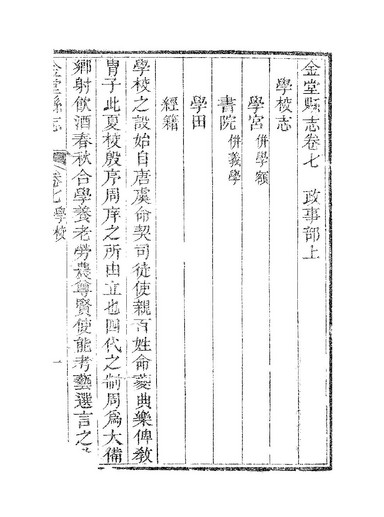 金堂縣志卷七　政事部上
學校志
學宮 併學額
書院 併義學
學田
經籍
學校之設始自唐虞命契司徒使親百姓命夔典樂俾敎
冑子此夏校殷序周庠之所由立也四代之制周爲大備
鄉射飲酒春秋合學養老勞農尊賢使能考藝選言之
金堂縣志　卷七學校　一